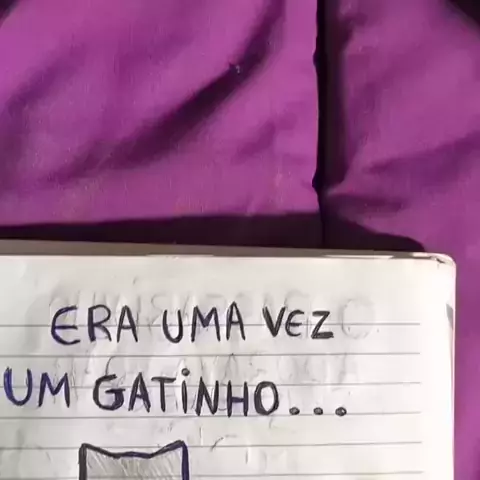 ERA UMA VEZ
UM GATINHO...